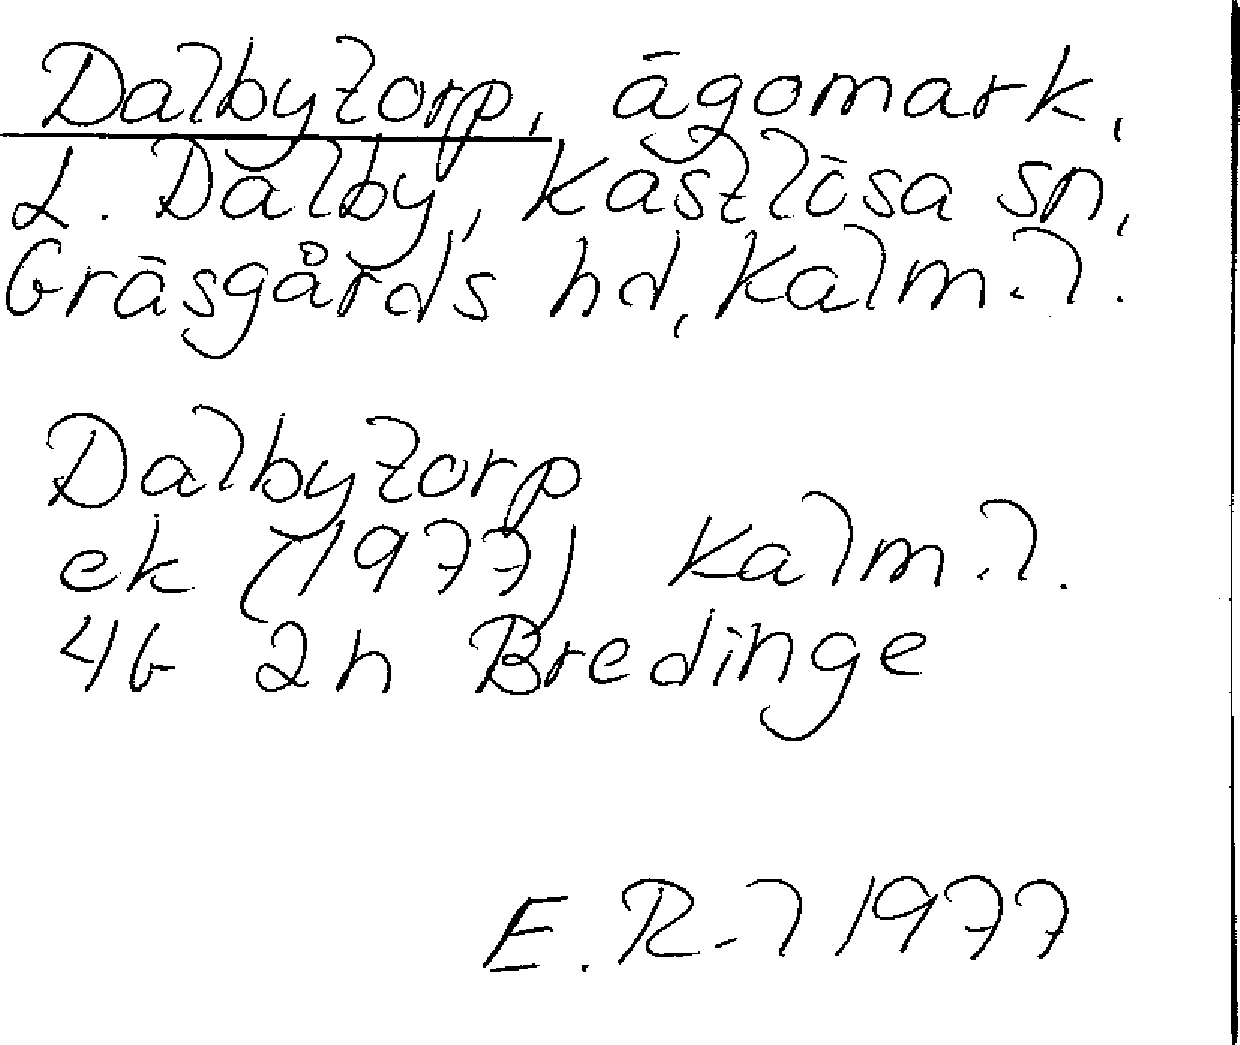 Dalbytorp, ägomark,
L. Dalby, Kastlösa sn,
Gräsgårds hd, Kalm. l.
Dalbytorp
ek (1977) Kalm. l.
4G 2h Bredinge
E. R-l 1977